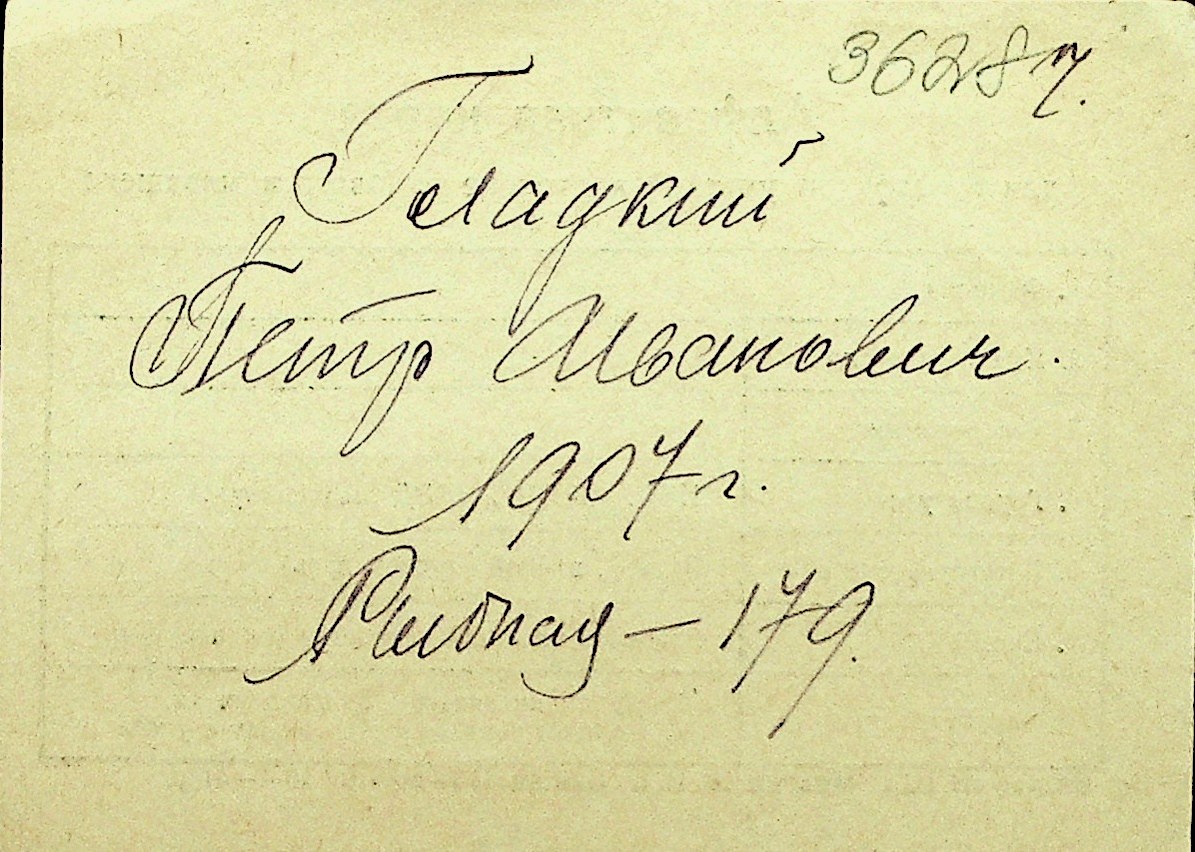 36287.
Гладкий
Петр Иванович.
1907 г.
Рыбная – 179.